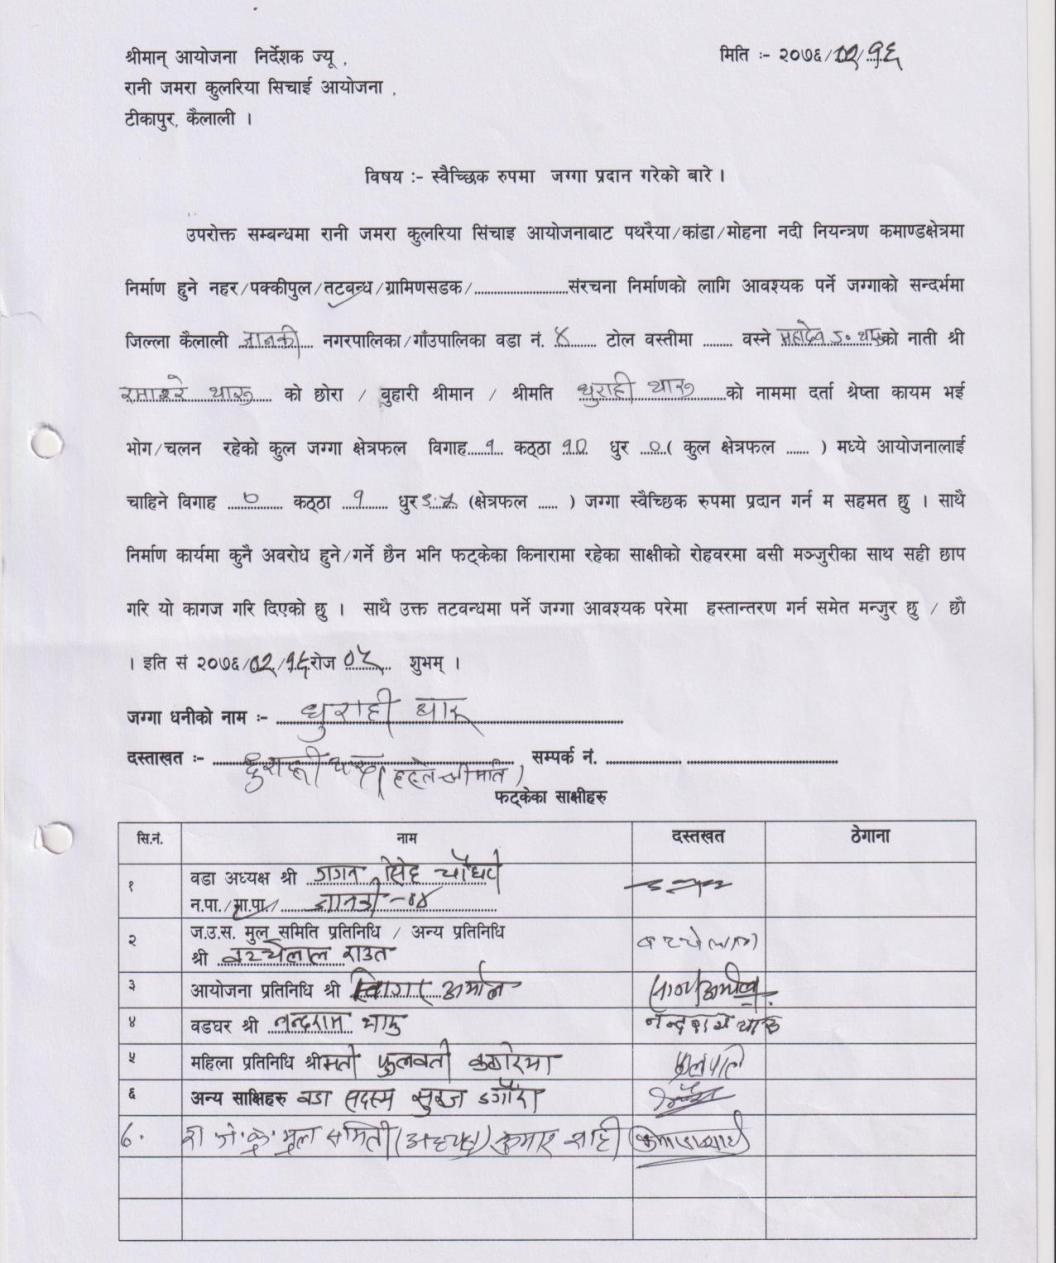 श्रीमान् आयोजना निर्देशक ज्यू , मिति :- २०७६/०२/१६
रानी जमरा कुलरिया सिचाई आयोजना ,
टीकापुर, कैलाली ।
विषय :- स्वैच्छिक रुपमा जग्गा प्रदान गरेको बारे ।
उपरोक्त सम्बन्धमा रानी जमरा कुलरिया सिंचाइ आयोजनाबाट पथरैया/कांडा/मोहना नदी नियन्त्रण कमाण्डक्षेत्रमा
निर्माण हुने नहर/पक्कीपुल/तटबन्ध/ग्रामिणसडक/........................संरचना निर्माणको लागि आवश्यक पर्ने जग्गाको सन्दर्भमा
जिल्ला कैलाली जानकी नगरपालिका/गाँउपालिका वडा नं. ४ टोल वस्तीमा ........ वस्ने महादेव ड० थारु को नाती श्री
थारु को छोरा / बुहारी श्रीमान / श्रीमति धुराही थारु को नाममा दर्ता श्रेष्ता कायम भई
भोग/चलन रहेको कुल जग्गा क्षेत्रफल विगाह १ कठ्ठा १० धुर ० ( कुल क्षेत्रफल ...... ) मध्ये आयोजनालाई
चाहिने विगाह ० कठ्ठा १ धुर (क्षेत्रफल ..... ) जग्गा स्वैच्छिक रुपमा प्रदान गर्न म सहमत छु । साथै
निर्माण कार्यमा कुनै अवरोध हुने/गर्ने छैन भनि फट्केका किनारामा रहेका साक्षीको रोहवरमा वसी मञ्जुरीका साथ सही छाप
गरि यो कागज गरि दिएको छु । साथै उक्त तटवन्धमा पर्ने जग्गा आवश्यक परेमा हस्तान्तरण गर्न समेत मन्जुर छु / छौ
। इति सं २०७६/०२/१६ रोज ०५ शुभम् ।
जग्गा धनीको नाम :- धुराही थारु
दस्ताखत :- धुराही थारु सम्पर्क नं. ....................
फट्केका साक्षीहरु
सि.नं. नाम दस्तखत ठेगाना
१ वडा अध्यक्ष श्री गगन सिंह चौधरी
न.पा./गा.पा./ जानकी -०४
२ ज.उ.स. मुल समिति प्रतिनिधि / अन्य प्रतिनिधि
श्री बच्चेलाल राउत बच्चेलाल
३ आयोजना प्रतिनिधि श्री
४ वडघर श्री नन्दराम थारु नन्दराम थारु
५ महिला प्रतिनिधि श्रीमती फुलवती कठरिया फुलपति
६ अन्य साक्षिहरु वडा सदस्य सुरज डगौरा
७. रा.ज.कु. मूल समिती (अध्यक्ष) कुमार शाही